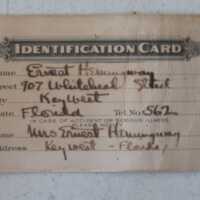 IDENTIFICATION CARD
Name Ernest Hemingway
Street 907 Whitehead Street
Key West
State Florida Tel. No. 562
IN CASE OF ACCIDENT OR SERIOUS ILLNESS
PLEASE NOTIFY
Name Mrs Ernest Hemingway
Address Key West - Florida